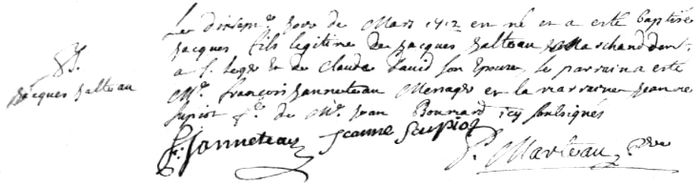 Le dixsepme jour de Mars 1712 est né et a esté baptisé
Jacques fils legitime de Jacques Valteau Marchand dem.t
Bt.
Jacques Valteau
a S. Leger et de Claude David son Epouse. Le parrain a esté
Mre. françois Janneteau Menager et la marraine Jeanne
Supiot f.e de Mre. Jean Bonnard icy soussignés
f. Janneteau Jeanne Scupiot
P. Marteau, Pbre